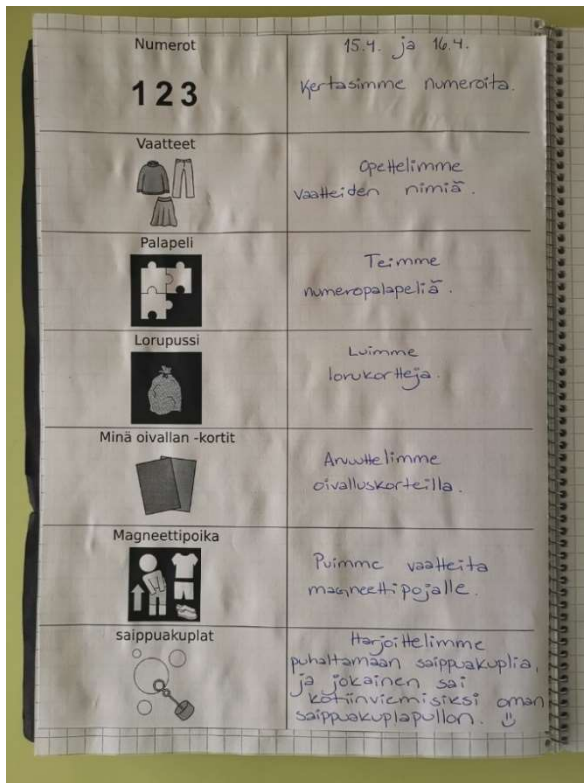 Numerot
1 2 3
15.4. ja 16.4.
Kertasimme numeroita.
Vaatteet
Opettelimme
vaatteiden nimiä.
Palapeli
Teimme
numeropalapeliä.
Lorupussi
Luimme
lorukortteja.
Minä oivallan -kortit
Arvuuttelimme
oivalluskorteilla.
Magneettipoika
Puimme vaatteita
magneettipojalle.
saippuakuplat
Harjoittelimme
puhaltamaan saippuakuplia,
ja jokainen sai
kotiinviemisiksi oman
saippuakuplapullon.